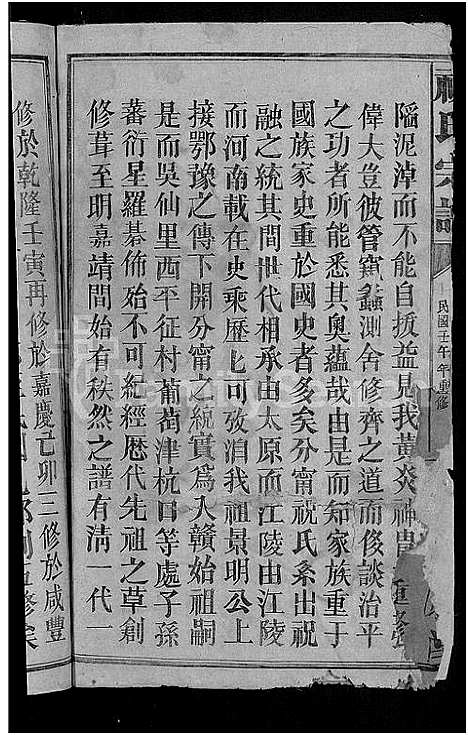 祝氏宗譜
民國壬午年重修
隘泥淖而不能自拔益見我黃炎神胄
偉大豈彼管窺蠡測舍修齊之道而侈談治平
之功者所能悉其奧蘊哉由是而知家族重于
國族家史重於國史者多矣分甯祝氏系出祝
融之統其間世代相承由太原而江陵由江陵
而河南載在史乘歷匕可攷洎我祖景明公上
接鄂豫之傳下開分甯之統實爲入贛始祖嗣
是而吳仙里西平征村葡萄津杭口等處子孫
蕃衍星羅碁佈始不可紀經歷代先祖之草創
修葺至明嘉靖間始有秩然之譜有清一代一
修於乾隆壬寅再修於嘉慶己卯三修於咸豐